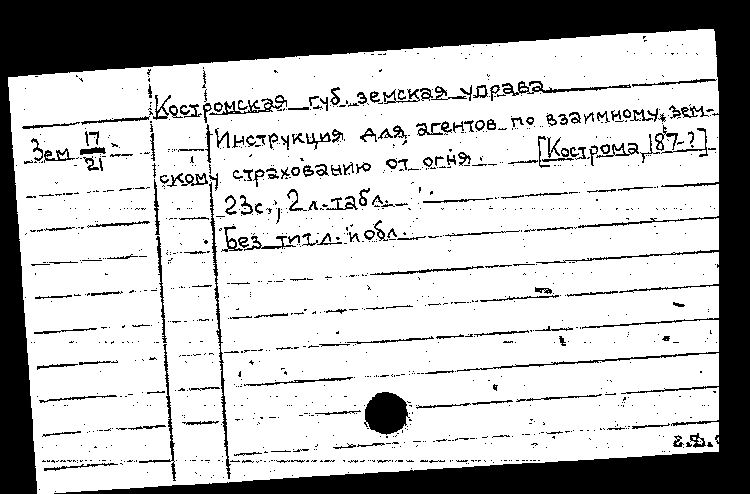 Костромская губ. земская управа.
Зем 17/21
Инструкция для агентов по взаимному зем-
скому страхованию от огня. [Кострома, 187-?]
23с., 2 л. табл.
Без тит.л. и обл.